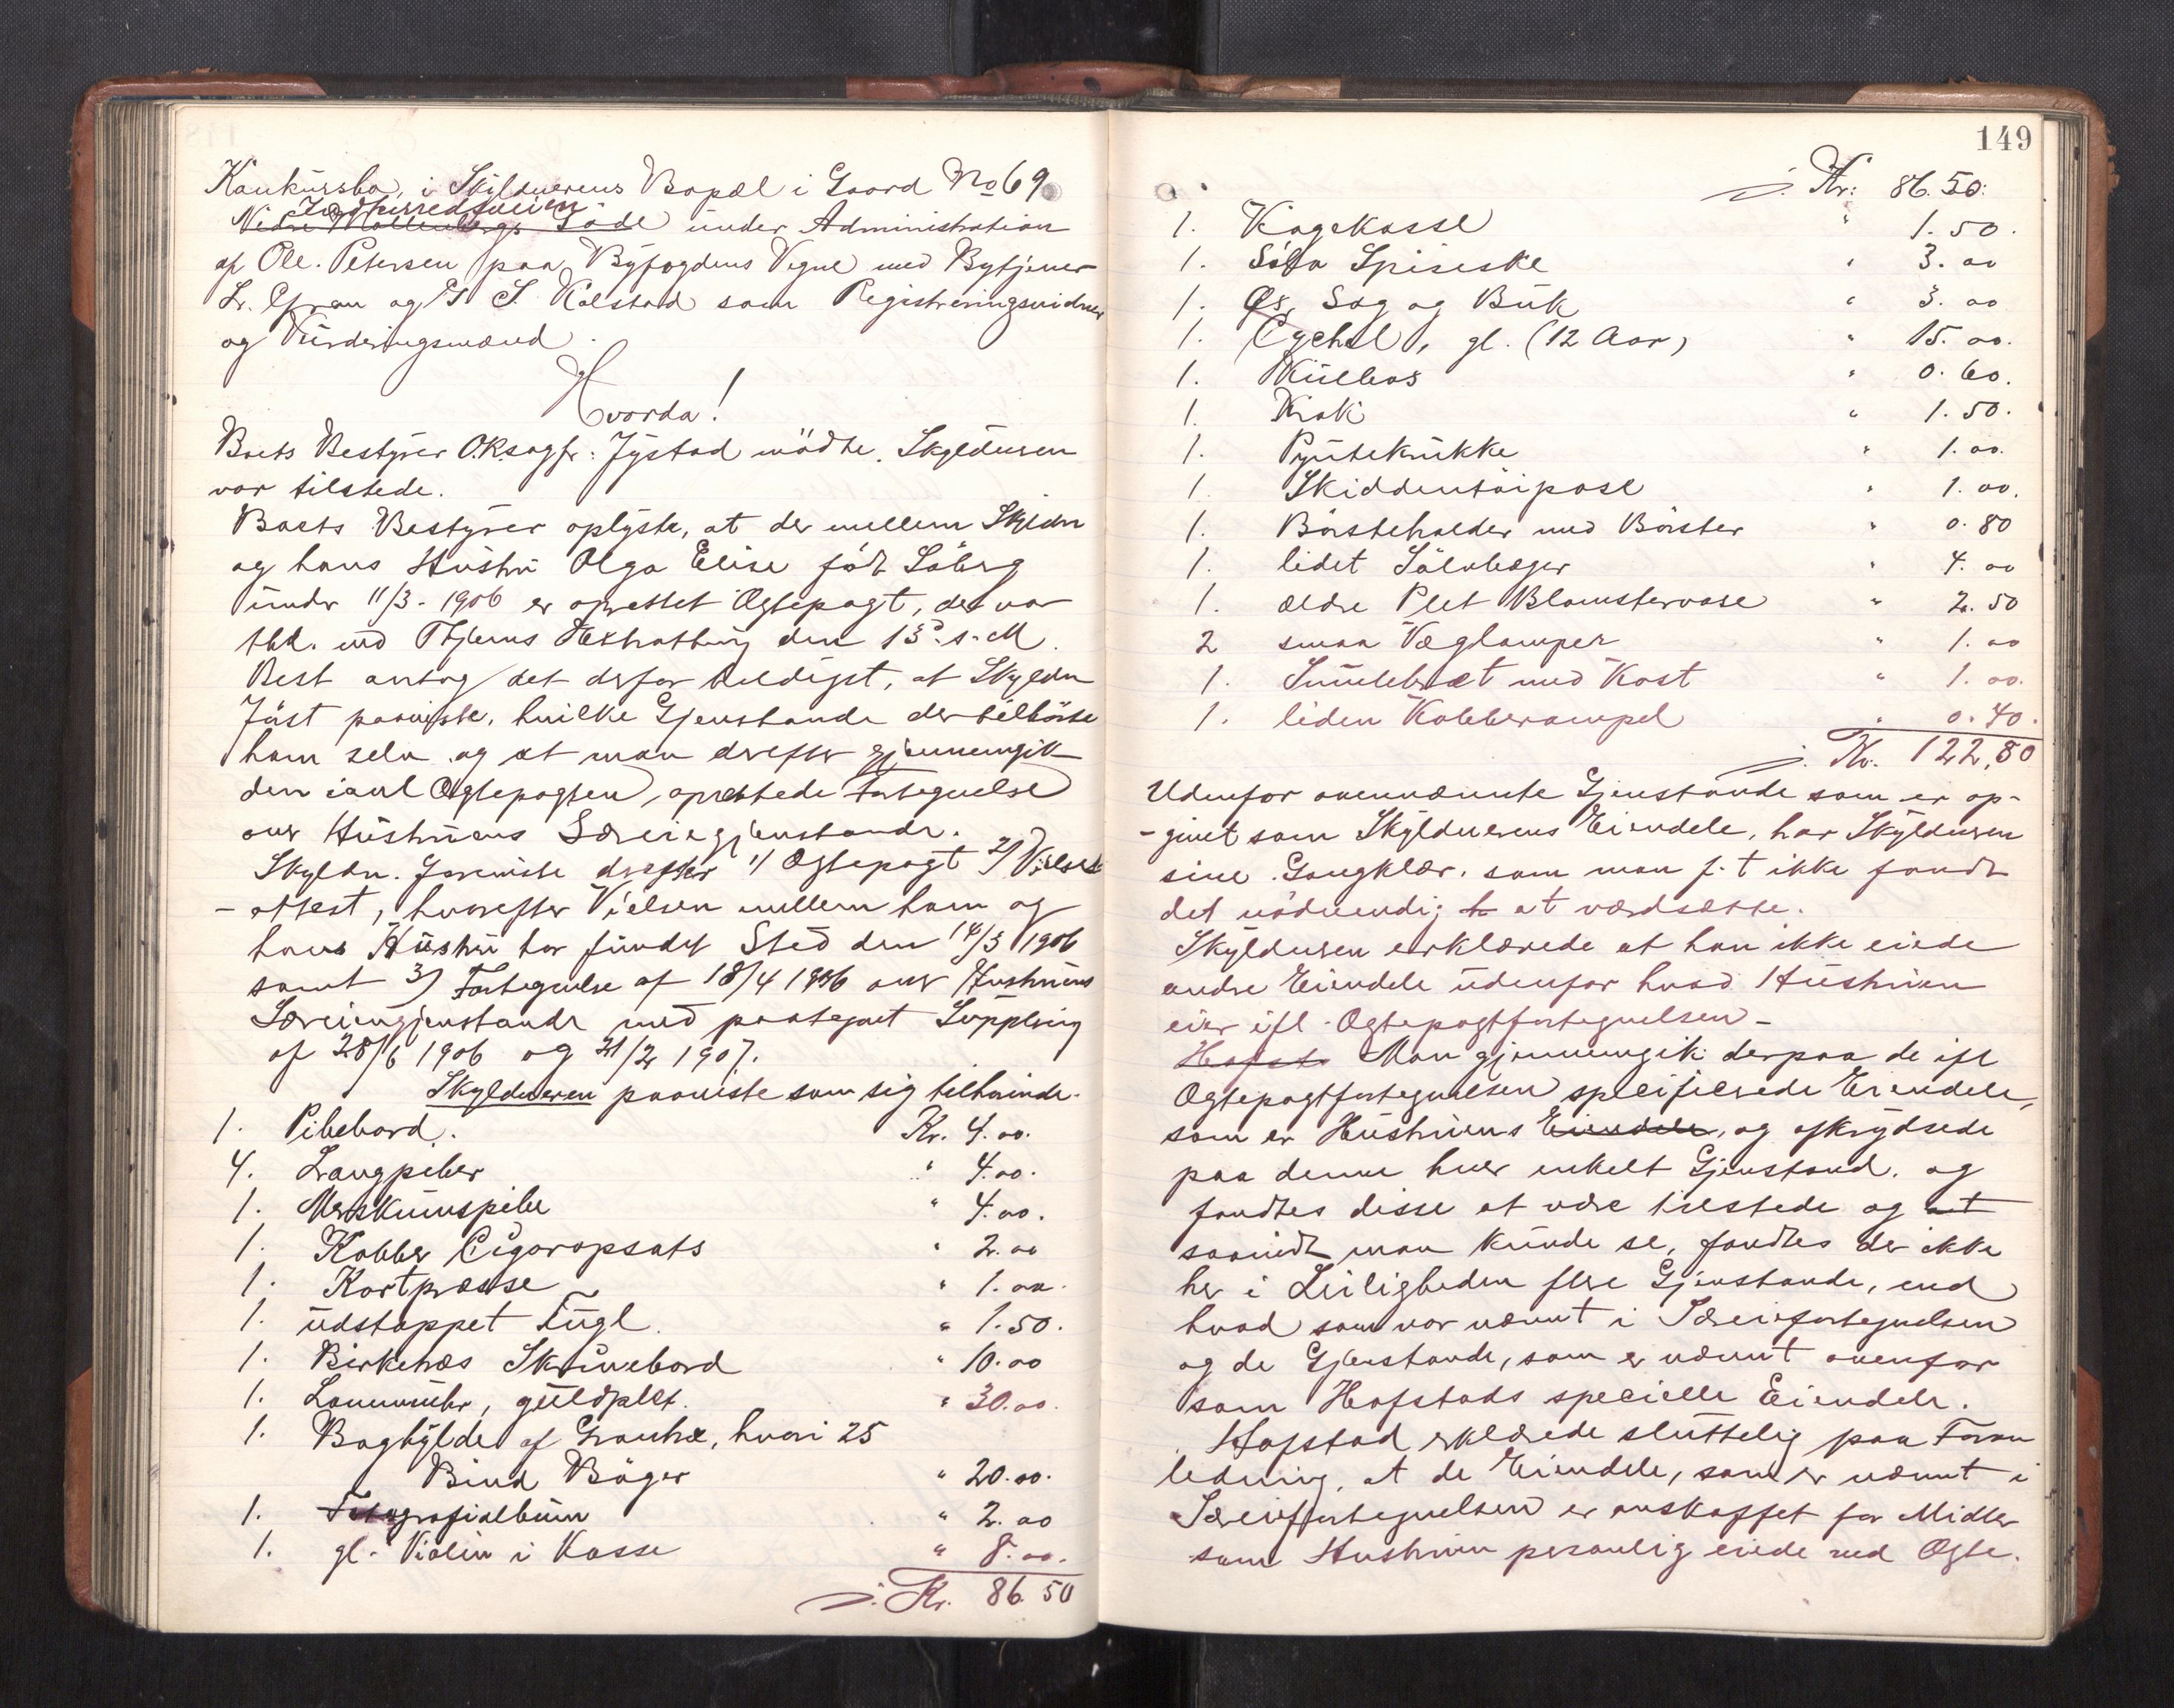 Konkursbo, i Skyldnerens Bopæl i Gaard No 69
Indherredsveien
Nedre Møllenbergs Gade under Administration
af Ole Petersen paa Byfogdens Vegne med Bytjener
Lr. Gran og T S. Kolstad som Registreringsvidner
og Vurderingsmænd.
Hvorda!
Boets Bestyrer O.R.sagfr: Jystad mødte. Skyldneren
var tilstede.
Boets Bestyrer oplyste, at der mellem Skyldn
og hans Hustru Olga Elise født Söberg
under 11/3-1906 er oprettet Ægtepagt, der var
thl. ved Thjems Extratting den 13d. s. M.
Best antog det derfor heldigst, at Skyldn
først paaviste, hvilke Gjenstande der tilhörte
ham selv og at man derefter gjennemgik
den iaul Ægtepagten, oprettede Fortegnelse
over Hustruens Særeiegjenstande.
Skyldn. foreviste derefter 1/ Ægtepagt 2/ Vielses
-attest, hvorefter Vielsen mellem ham og
hans Hustru har fundet Sted den 14/3 1906
samt 3) Fortegnelse af 18/4 1906 over Hustruens
Særeiegjenstande med paategnet Supplering
af 28/6 1906 og 21/2 1907.
Skyldneren paaviste som sig tilhörende.
1. Pibebord. Kr. 4.00.
4. Langpiber " 4.00.
1. Merskumspibe " 4.00.
1. Kobber Cigaropsats " 2.00
1. Kortpresse " 1.00.
1. udstoppet Fugl. " 1.50.
1. Birketræs Skrivebord " 10.00
1. Lommeuhr, guldplet. " 30.00.
1. Boghylde af Grantræ, hvori 25
Bind Böger " 20.00.
1. Fotografialbum " 2.00
1. gl. Violin i Kasse " 8.00.
j. Kr. 86.50
149
j. Kr: 86.50.
1. Kagekasse " 1.50.
1. Sölv Spiseske " 3.00
1. Øs, Sag og Buk " 3.00
1. Cychel, gl. (12 Aar) " 15.00.
1. Kulboks " 0.60.
1. Krak " 1.50.
1. Pyntekrukke " 1.00.
1. Skiddentöipose " 1.00.
1. Börsteholder med Börster " 0.80
1. lidet Sölvbæger " 4.00
1. ældre Plet Blomstervase " 2.50
2 smaa Væglamper " 1.00
1. Smulebræt med Kost " 1.00.
1. liden Kobberampel " 0.40.
j. Kr. 122,80
Udenfor ovennævnte Gjenstande som er op-
-givet som Skyldnerens Eiendele, har Skyldneren
sine Gangklær. som man f.t ikke fandt
det nödvendig at værdsætte.
Skyldneren erklærede at han ikke eiede
andre Eiendele udenfor hvad Hustruen
eier ifl. Ægtepagtfortegnelsen -
Hofst Man gjennemgik derpaa de ifl
Ægtepagtfortegnelsen specificerede Eiendele,
som er Hustruens Eiendele, og afkrydsede
paa denne hver enkelt Gjenstand. og
fandtes disse at være tilstede og at
saavidt man kunde se, fandtes der ikke
her i Leiligheden flere Gjenstande, end
hvad som var nævnt i Særeiefortegnelsen
og de Gjenstande, som er nævnt ovenfor
som Hofstads specielle Eiendele.
Hofstad erklærede sluttelig paa Foran
ledning, at de Eiendele, som er nævnt i
Særeiefortegnelsen er anskaffet for Midler
som Hustruen personlig eiede ved Ægte.